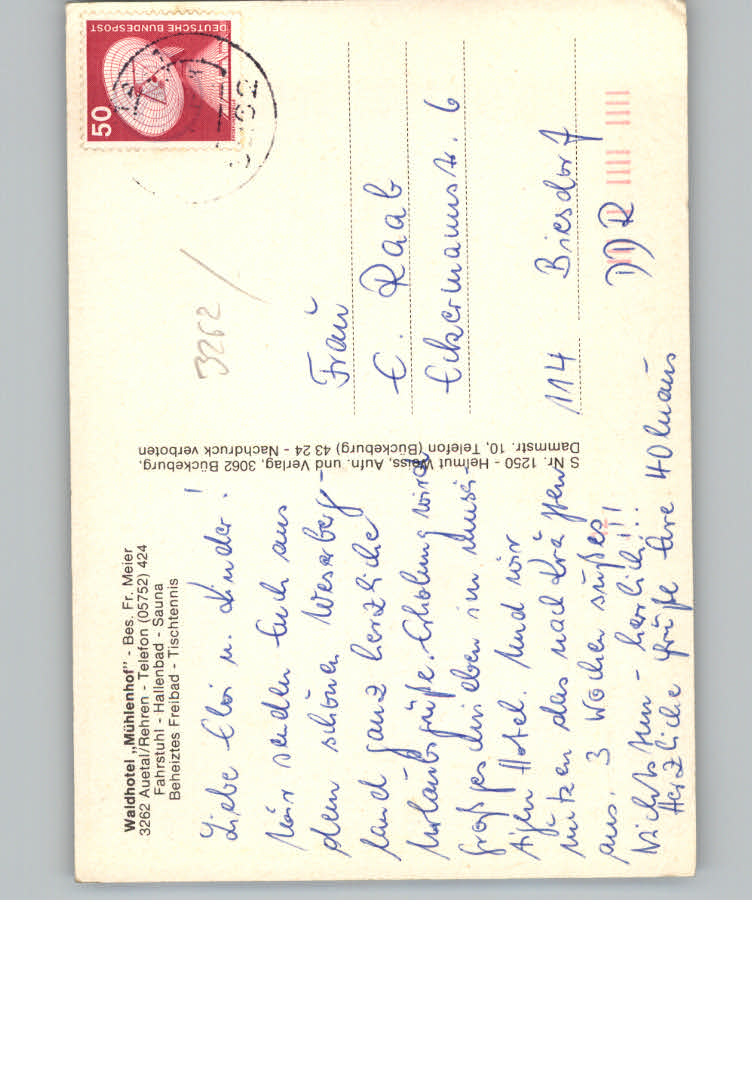 Waldhotel „Mühlenhof" - Bes. Fr. Meier
3262 Auetal/Rehren - Telefon (05752) 424
Fahrstuhl - Hallenbad - Sauna
Beheiztes Freibad - Tischtennis
Liebe Elvi u. Kinder!
Wir senden Euch aus
dem schönen Weserberg-
land ganz herzliche
Urlaubsgrüße. Erholung wird
großgeschrieben im
Hotel. Und wir
nutzen das nach Kräften
aus. 3 Wochen süßes
Nichtstun - herrlich!!!
Herzliche Grüße Eure
S Nr. 1250 - Helmut Weiss, Aufn. und Verlag, 3062 Bückeburg,
Dammstr. 10, Telefon (Bückeburg) 43 24 - Nachdruck verboten
DEUTSCHE BUNDESPOST
50
3262
Frau
E. Raab
Eckermannstr. 6
114 Biesdorf
DDR